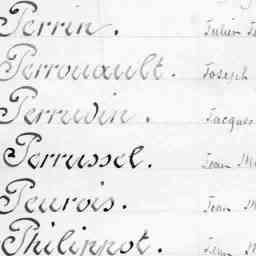 Perrin. Julien
Perrouault. Joseph
Perrudin. Jacques
Perrussel. Jean
Peurois. Jean
Philippot. Jean